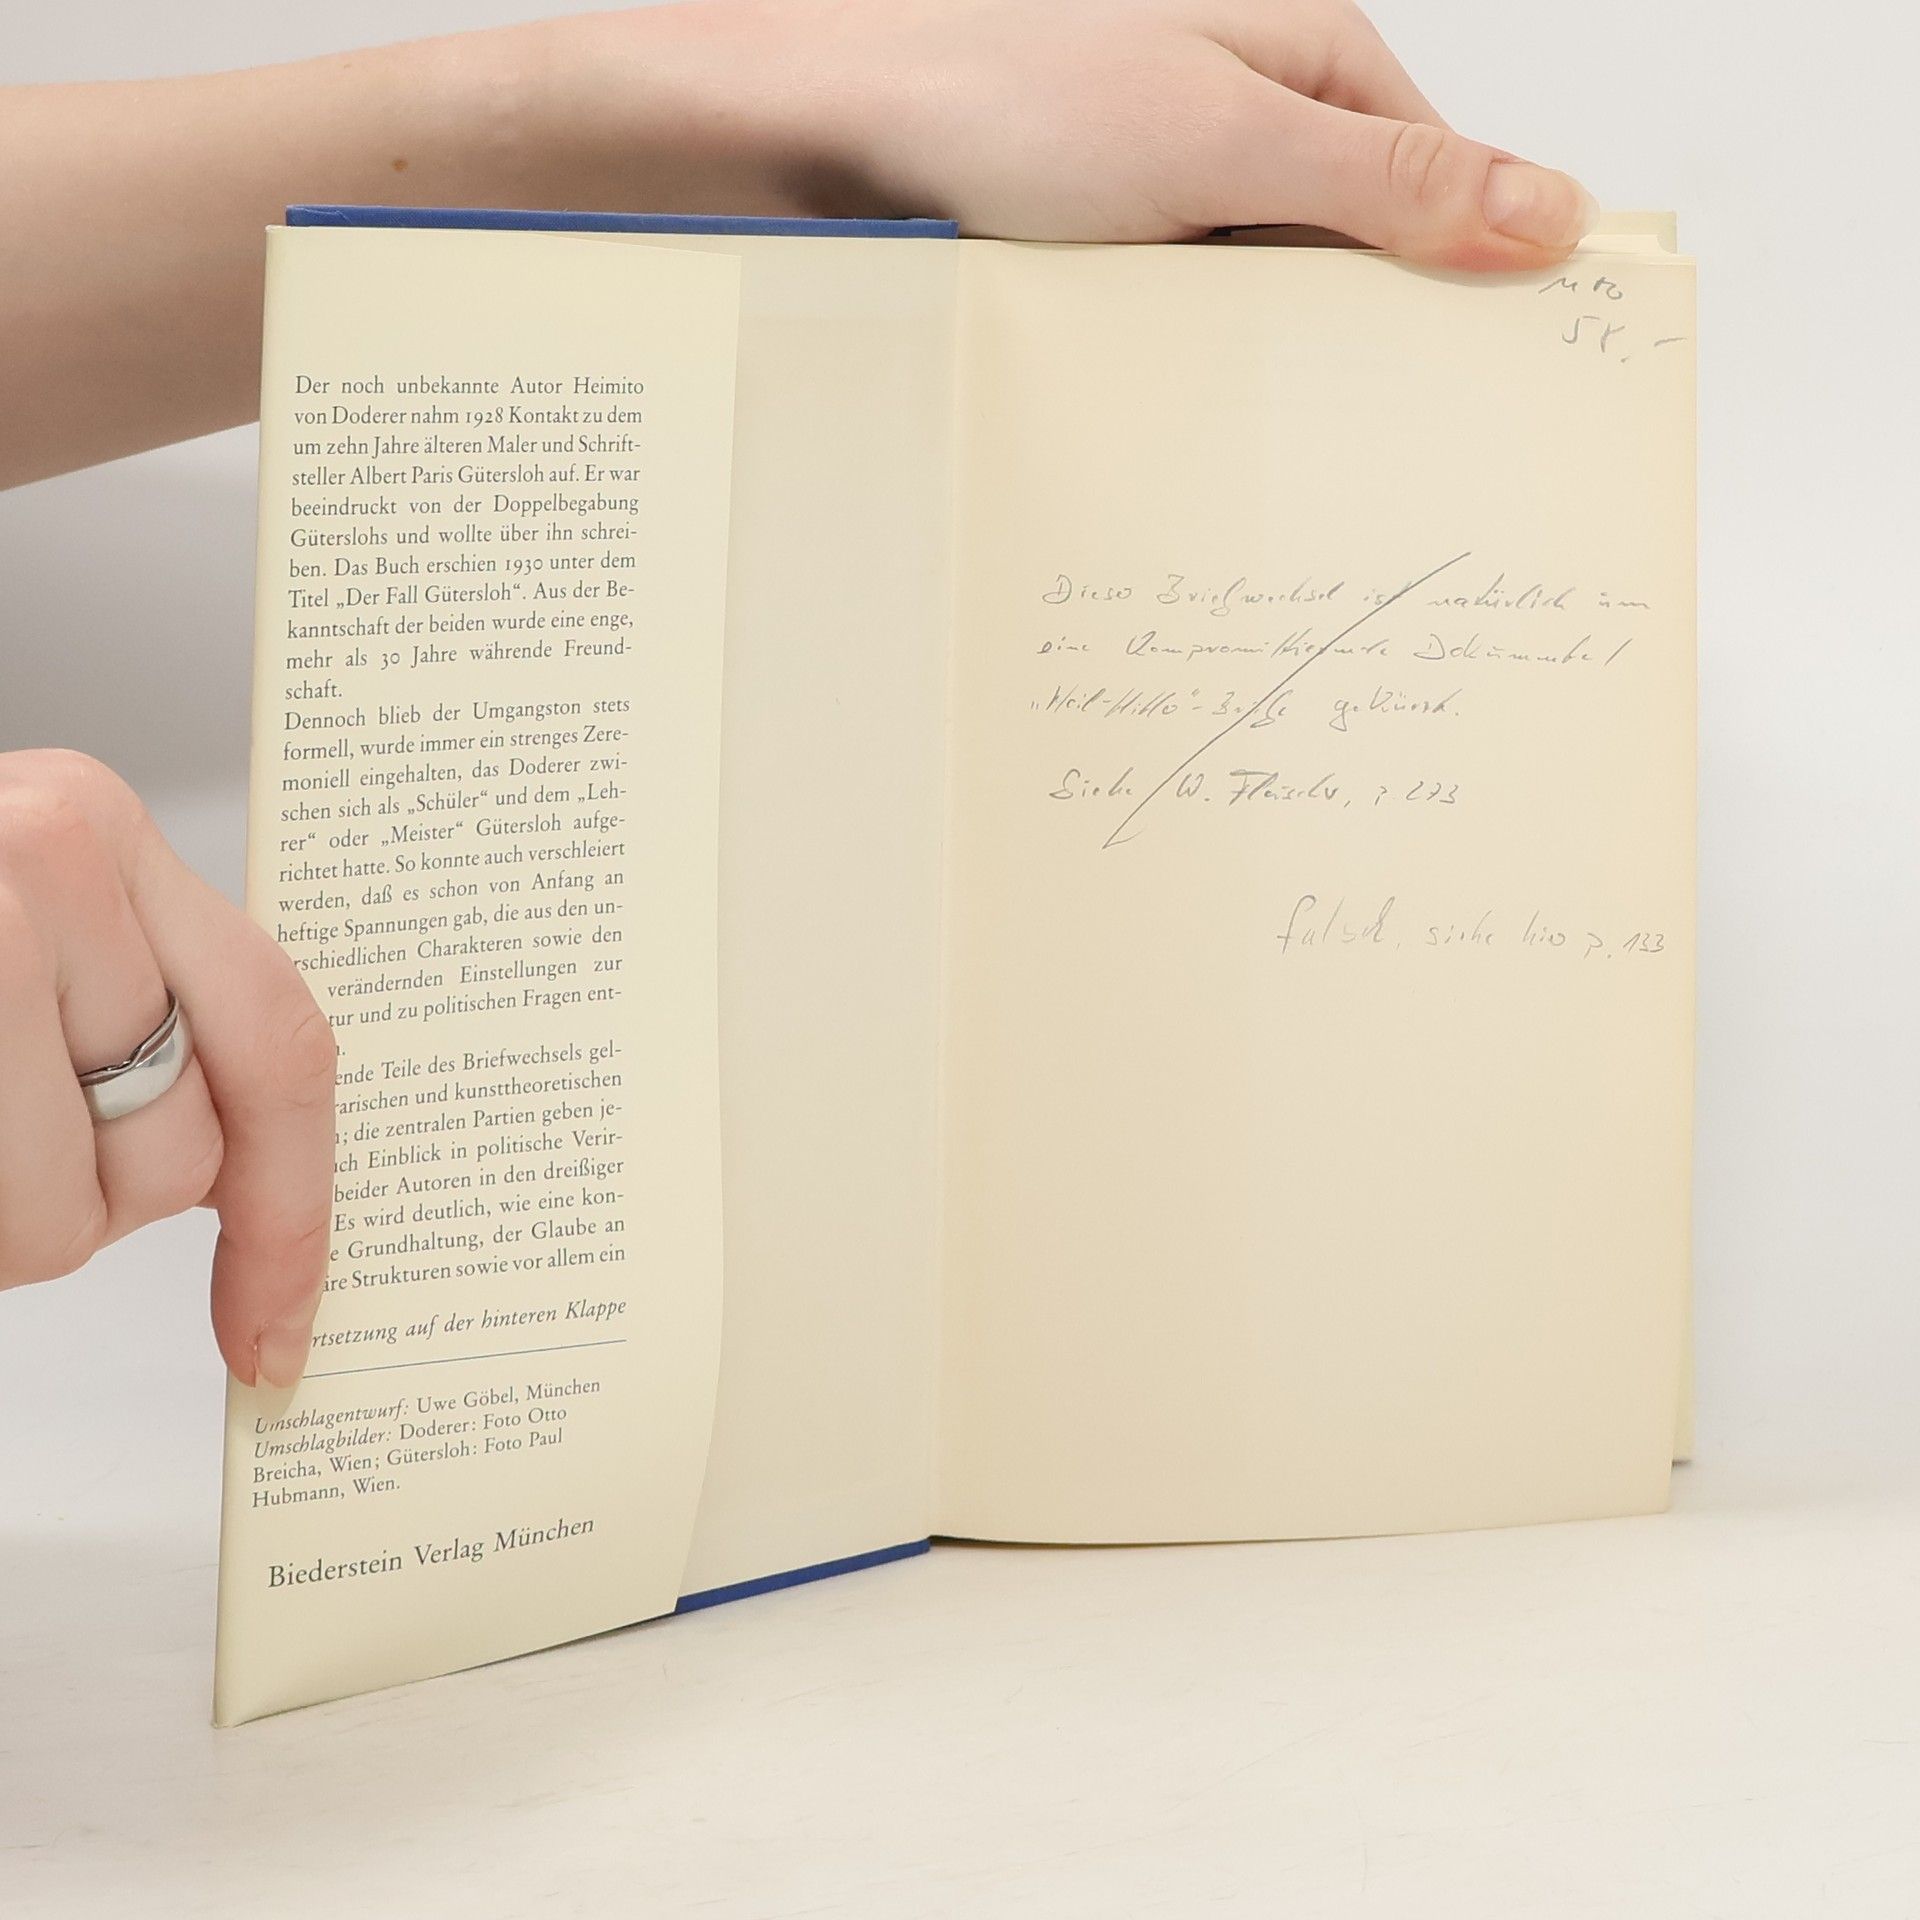 Der noch unbekannte Autor Heimito
von Doderer nahm 1928 Kontakt zu dem
um zehn Jahre älteren Maler und Schrift-
steller Albert Paris Gütersloh auf. Er war
beeindruckt von der Doppelbegabung
Güterslohs und wollte über ihn schrei-
ben. Das Buch erschien 1930 unter dem
Titel „Der Fall Gütersloh“. Aus der Be-
kanntschaft der beiden wurde eine enge,
mehr als 30 Jahre währende Freund-
schaft.
Dennoch blieb der Umgangston stets
formell, wurde immer ein strenges Zere-
moniell eingehalten, das Doderer zwi-
schen sich als „Schüler“ und dem „Leh-
rer“ oder „Meister“ Gütersloh aufge-
richtet hatte. So konnte auch verschleiert
werden, daß es schon von Anfang an
heftige Spannungen gab, die aus den un-
rschiedlichen Charakteren sowie den
verändernden Einstellungen zur
tur und zu politischen Fragen ent-
n.
ende Teile des Briefwechsels gel-
rarischen und kunsttheoretischen
n; die zentralen Partien geben je-
ch Einblick in politische Verir-
beider Autoren in den dreißiger
Es wird deutlich, wie eine kon-
e Grundhaltung, der Glaube an
äre Strukturen sowie vor allem ein
rtsetzung auf der hinteren Klappe
Umschlagentwurf: Uwe Göbel, München
Umschlagbilder: Doderer: Foto Otto
Breicha, Wien; Gütersloh: Foto Paul
Hubmann, Wien.
Biederstein Verlag München
58.-
Dieser Briefwechsel ist natürlich um
eine kompromittierende Dokumente /
"Heil-Hitler"-Briefe gekürzt.
Siehe W. Fleischer, p. 273
falsch, siehe hier p. 133